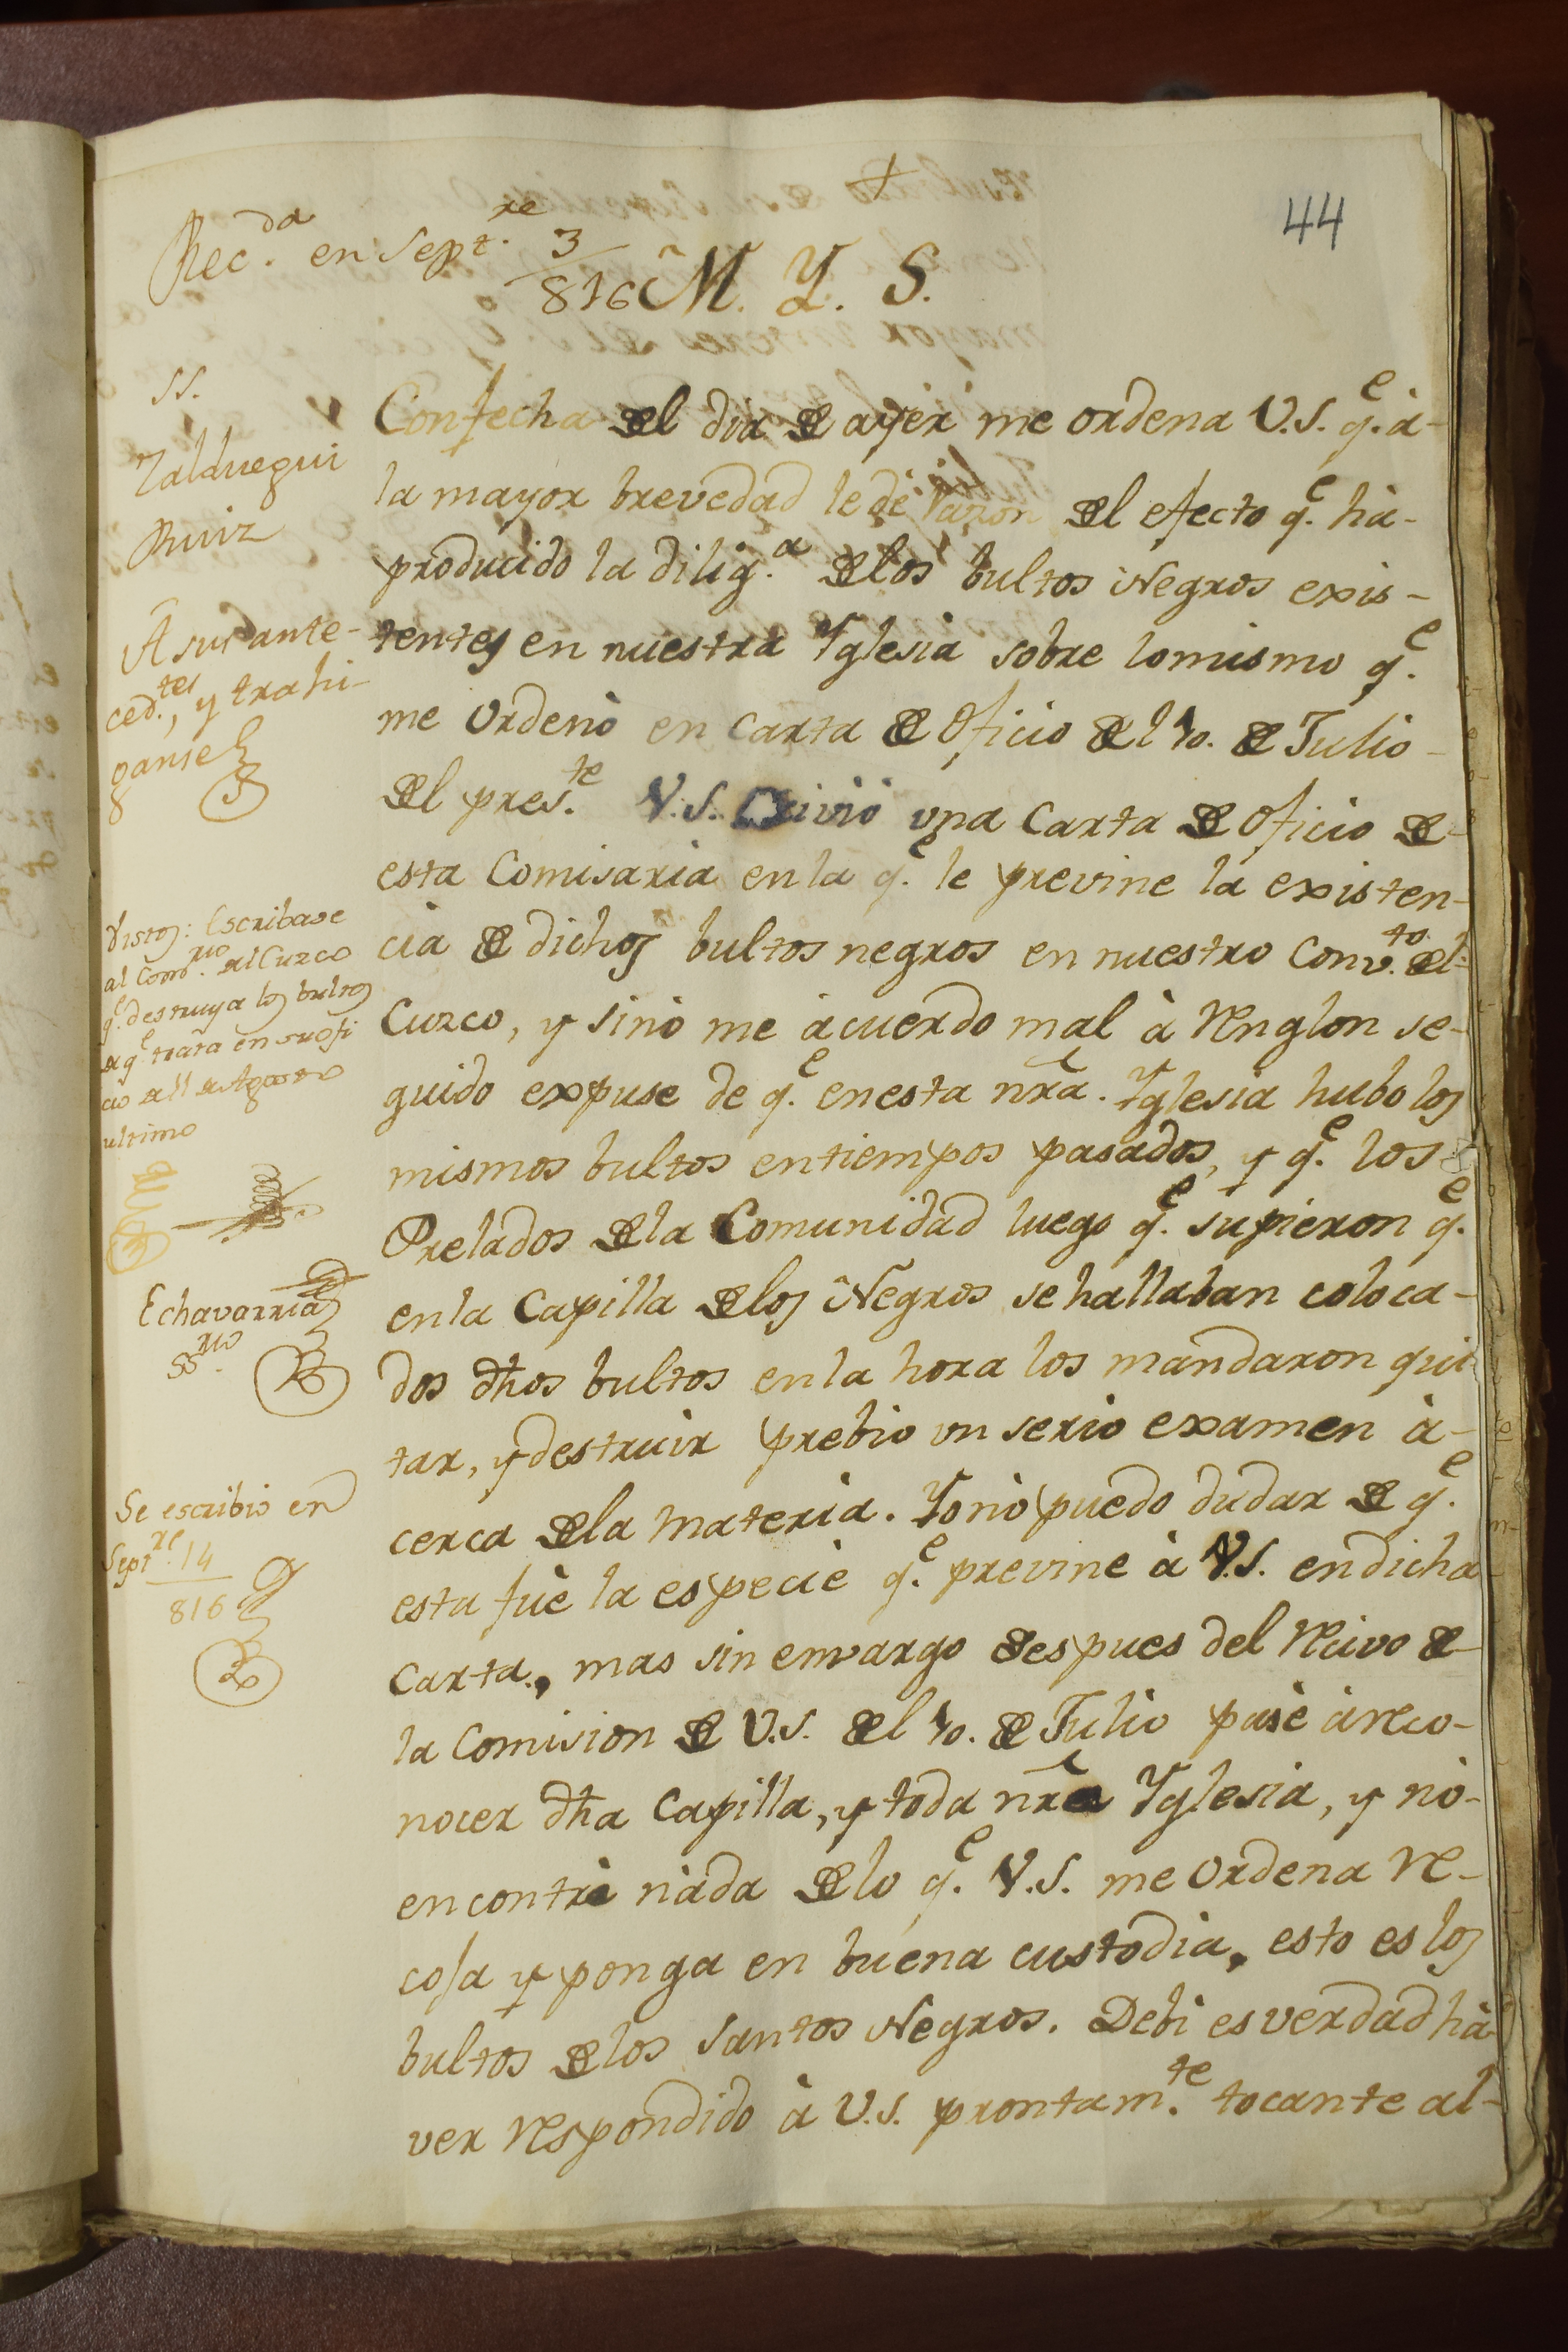 44
Rec.da en Sept.re 3
816
M. Y. S.
SS.
Zalduegui
Ruiz
A sus ante-
ced.tes, y trahi-
ganse
Vistos: Escribase
al Com.rio del Cuzco
q.e destruya los bultos
de q.e trata en su ofi
cio del 1 de Agosto
ultimo
Echavarria
SS.rio
Se escribio en
Sept.re 14
816
Con fecha del dia de ayer me ordena V.S. q.e à-
la mayor brevedad le dè razon del efecto q.e hà-
producido la dilig.a de los bultos Negros exis-
tentes en nuestra Yglesia sobre lo mismo q.e
me ordenò en carta de Oficio del 10. de Julio-
del pres.te V.S. recivió vna carta de Oficio de-
esta Comisaria en la q.e le previne la existen-
cia de dichos bultos negros en nuestro Conv.to del-
Cuzco, y sinò me acuerdo mal à renglon se-
guido expuse de q.e en esta nra. Yglesia hubo los
mismos bultos en tiempos pasados, y q.e los
Prelados de la Comunidad luego q.e supieron q.e
en la Capilla de los Negros se hallaban coloca-
dos dhos bultos en la hora los mandaron qui-
tar, y destruir prebio vn serio examen à-
cerca de la materia. Yo nò puedo dudar de q.e
esta fuè la especie q.e previne à V.S. en dicha
carta, mas sin envargo despues del recivo de
la Comision de V.S. del 10. de Julio pasè à reco-
nocer dha Capilla, y toda nra Yglesia, y nò-
encontrè nada de lo q.e V.S. me ordena re-
coja y ponga en buena custodia, esto es los
bultos de los Santos Negros. Debi es verdad hà-
ver respondido à V.S. prontam.te tocante al-